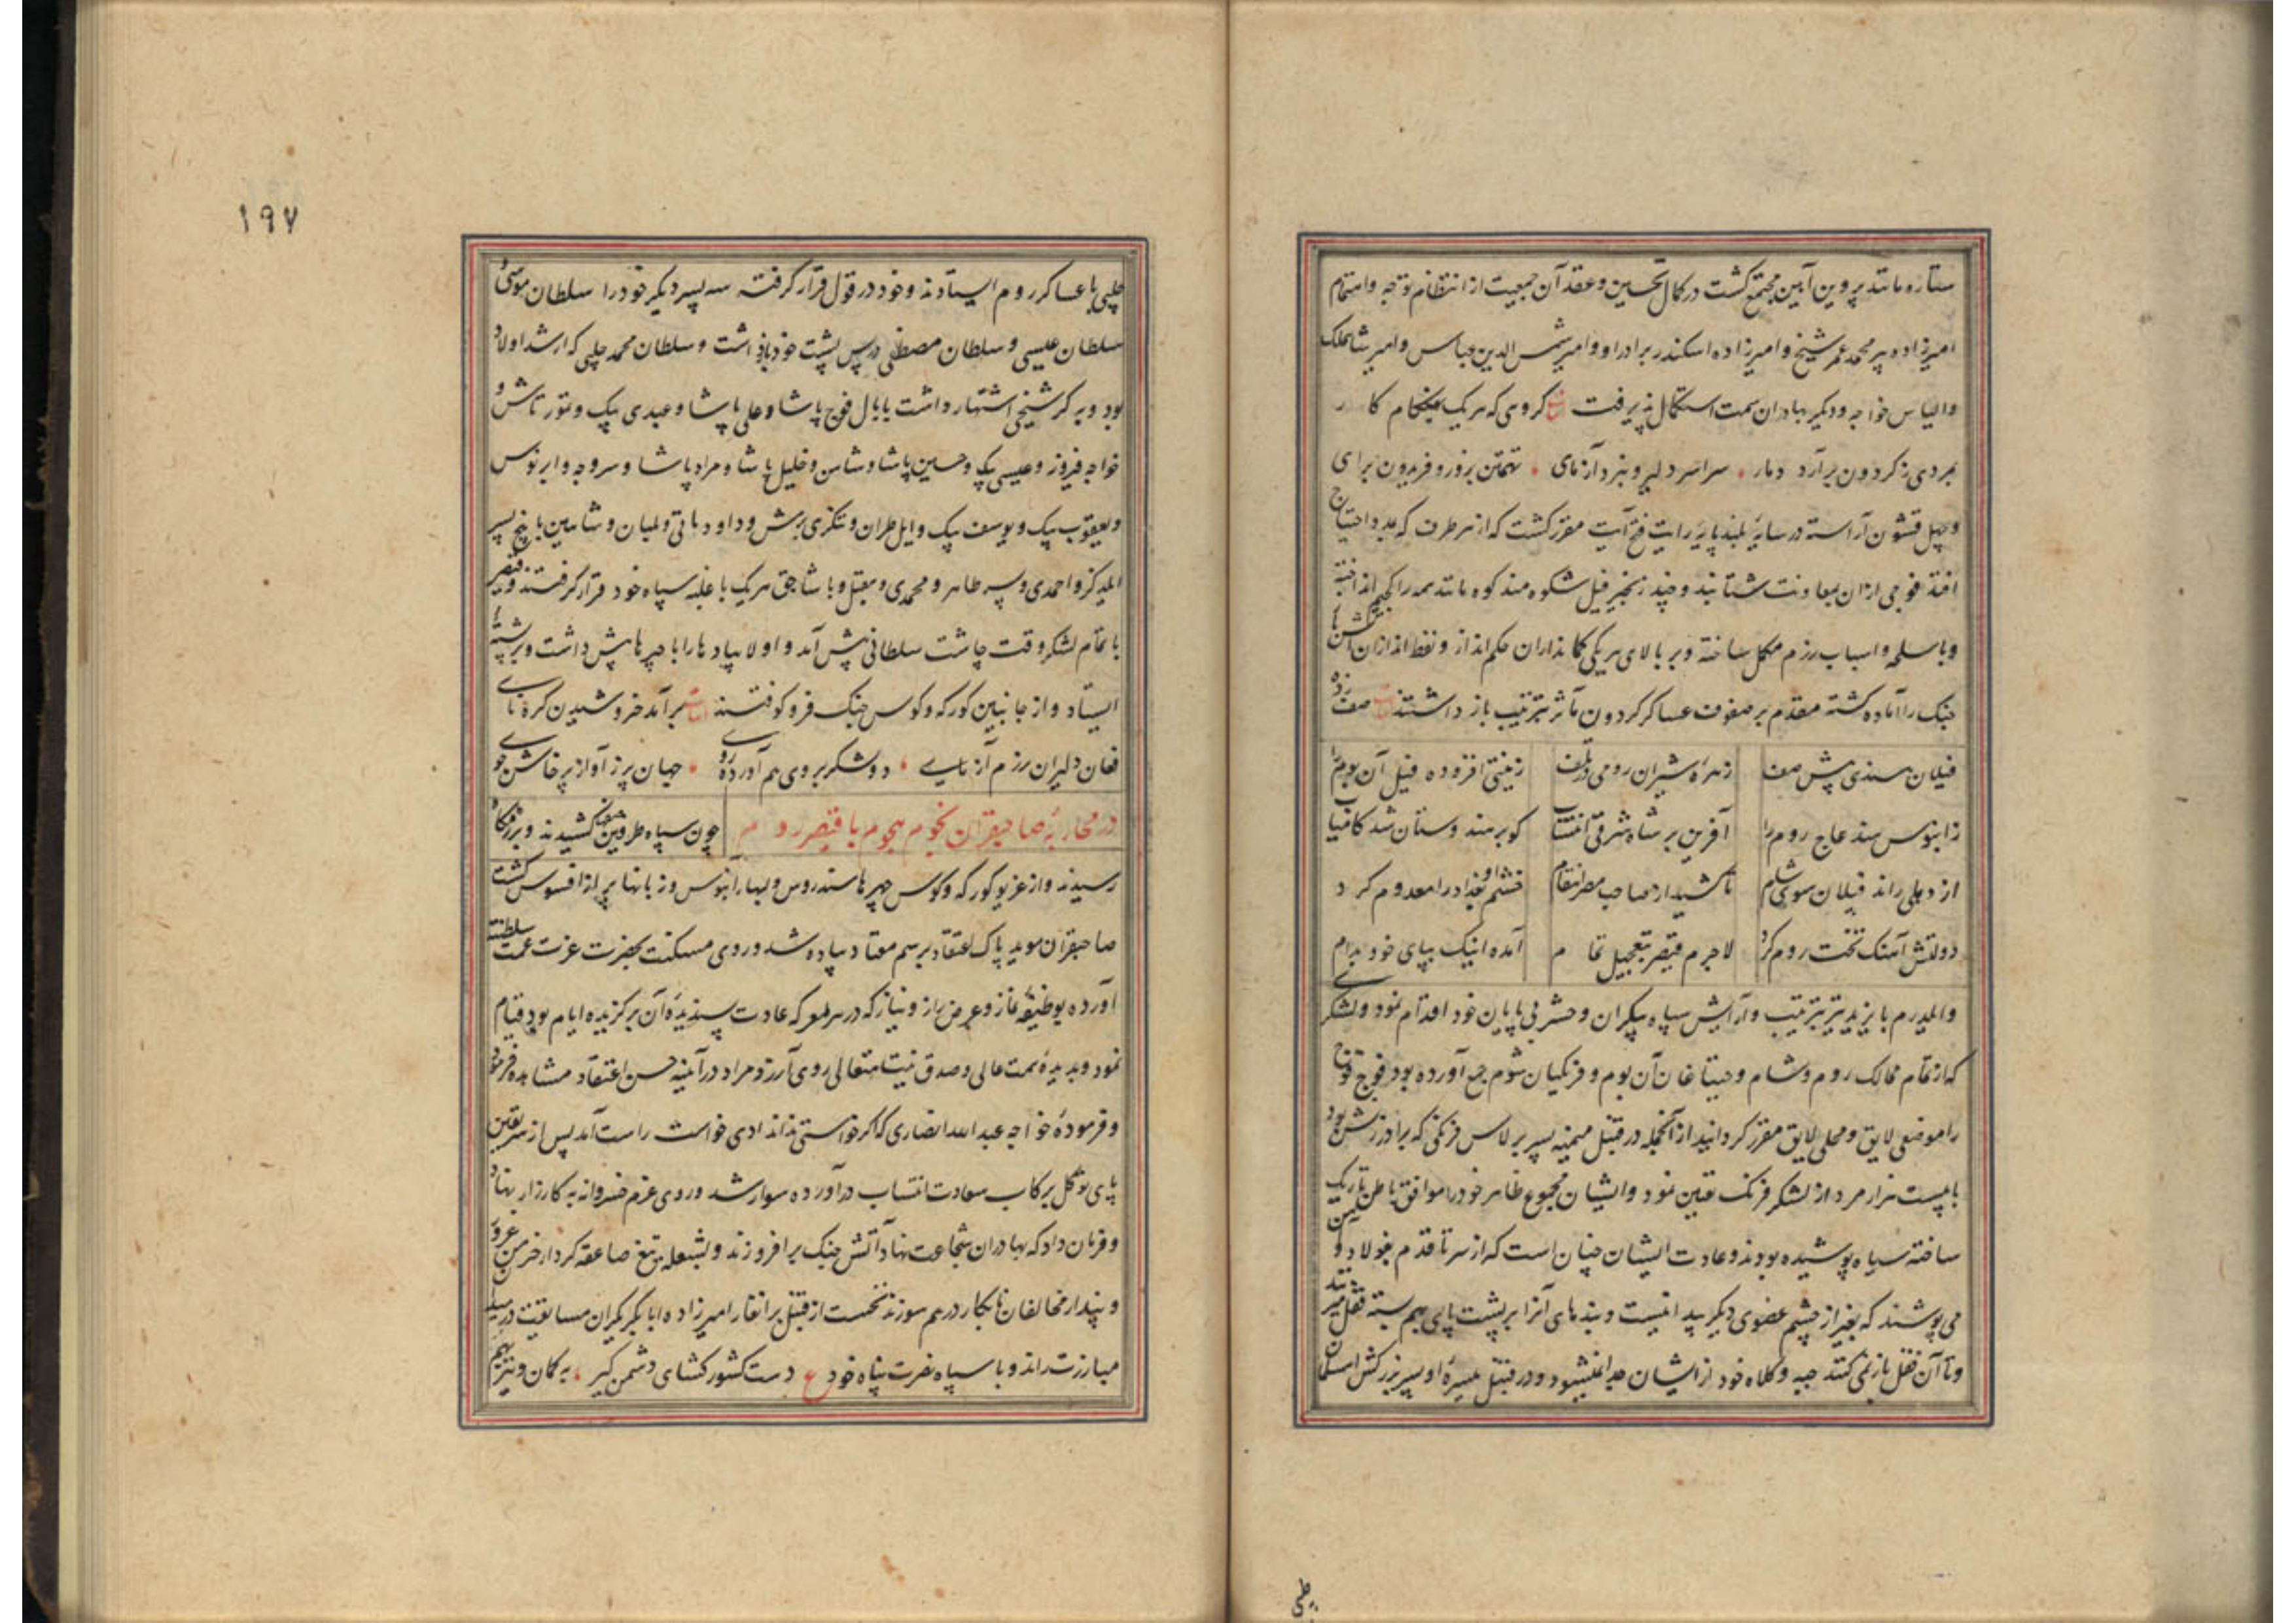 ستاره مانند پروین آیین مجتمع کشت در کمال تحسین و عقد آن جمعیت از انتظام توجه و اهتمام
امیرزاده پیر محمد عمر شیخ و امیرزاده اسکندر برادر او و امیر شمس الدین عباس و امیر شاهملک
والیاس خواجه و دیکر بهادران سمت استکمال پذیرفت ابیات کروهی که هر یک بهنکام کار
بمردی ز کردون برآرد دمار سراسر دلیر و نبرد آزمای تهمتن بزور و فریدون برای
و چهل قشون آراسته در سایهٔ بلند پایهٔ رایت فتح آیت مقرر کشت که از هر طرف که بمدد احتیاج
افتد فوجی از ان بمعاونت شتابند و چند زنجیر فیل شکوه مند کوه مانند همه را کجیم انداخته
و باسلحه و اسباب رزم مکمل ساخته و بر بالای هر یکی کمانداران حکم انداز و نفط اندازان آتش
جنک را آماده کشته مقدم بر صفوف عساکر کردون مآثر بترتیب باز داشتند ابیات صف زده
فیلان هندی پیش صف زهراه شیران رومی در تلف زینتی افزوده فیل آن بوم را
ز ابنوس هند عاج روم را آفرین بر شاه شرقی انتساب کو بر هندوستان شد کامیاب
از دهلی راند فیلان سوی شام تا کشید از صاحب مصر انتقام خشم او بغداد را معدوم کرد
دولتش آهنک تخت روم کرد لاجرم قیصر بتعجیل تمام آمده اینک بپای خود بدام
و ایلدرم بایزید نیز بترتیب و آرایش سپاه بیکران و حشر بی پایان خود اقدام نمود و لشکری
که از تمام ممالک روم و شام و جیتاغان آن بوم و فرنکیان شوم جمع آورده بود فوج فوج
را موضعی لایق و محلی لایق مقرر کردانید از آنجمله در قنبل میمنه پسر برلاس فرنکی که برادر زنش بود
با بیست هزار مرد از لشکر فرنک تعین نمود و ایشان مجموع ظاهر خود را موافق باطن تاریک
ساخته سیاه پوشیده بودند و عادت ایشان چنان است که از سر تا قدم بفولاد و آهن
می پوشند که بغیر از چشم عضوی دیکر پیدا نیست و بندهای آنرا بر پشت پای بهم بسته قفل میزنند
و تا آن قفل باز نمی کنند جبه و کلاه خود از ایشان جدا نمیشود و در قنبل میسره او پسر بزرکش امسلمان
طبی
۱۹۷
چلبی با عساکر روم ایستادند و خود در قول قرار کرفته سه پسر دیکر خود را سلطان موسی و
سلطان عیسی و سلطان مصطفی در پس پشت خود باز داشت و سلطان محمد چلبی که ارشد اولاد
بود و به کرشیخی اشتهار داشت با بال فوج پاشا و علی پاشا و عبدی بیک و تمور تاش و
خواجه فیروز و عیسی بیک و حسین پاشا و شاس و خلیل پاشا و مراد پاشا و سروجه و ابرنوس
و یعقوب بیک و یوسف بیک و ایل طران و تنکری برمش و داود باتی و لمیان و شاهین با پنج پسر
ایلد کز و احمدی و پسر طاهر و محمدی و مقبل و باشاجق هر یک با غلبه سپاه خود قرار کرفتند و قیصر
با تمام لشکر وقت چاشت سلطانی پیش آمد و اولا پیادها را با چپرها پیش داشت و بر پشتها
ایستاد و از جانبین کورکه و کوس جنک فرو کوفتند ابیات برآمد خروشیدن کره نای
فغان دلیران رزم آزمای دو لشکر بروی هم آورده روی جهان پر ز آواز پرخاش جوی
در محاربهٔ صاحبقران نجوم هجوم با قیصر روم چون سپاه طرفین صف کشیدند و برزمکاه
رسیدند و از غریو کورکه و کوس چهرها سندروس و لبها آبنوس و زبانها پر از افسوس کشت
صاحبقران موید پاک اعتقاد برسم معتاد پیاده شد و روی مسکنت بحضرت عزت عمت سلطنته
آورده بوظیفهٔ نماز و عرض راز و نیاز که در هر معرکه عادت پسندیدهٔ آن برکزیده ایام بود قیام
نمود و بدیدهٔ همت عالی و صدق نیت متعالی روی آرزو و مراد در آینه حسن اعتقاد مشاهده فرمود
و فرمودهٔ خواجه عبد الله انصاری که اکر خواستی نداند ادی خواست راست آمد پس از سر یقین
پای توکل برکاب سعادت انتساب درآورده سوار شد و روی عزم خسروانه به کارزار نهاد
و فرمان داد که بهادران شجاعت نهاد آتش جنک برافروزند و بشعله تیغ صاعقه کردار خرمن غرور
و پندار مخالفان نابکار در هم سوزند نخست از قنبل برانغار امیرزاده ابابکر یکران مسابقت در میدان
مبارزت راند و با سپاه نصرت پناه خود ع دست کشور کشای دشمن کیر به کمان و بتیر هم